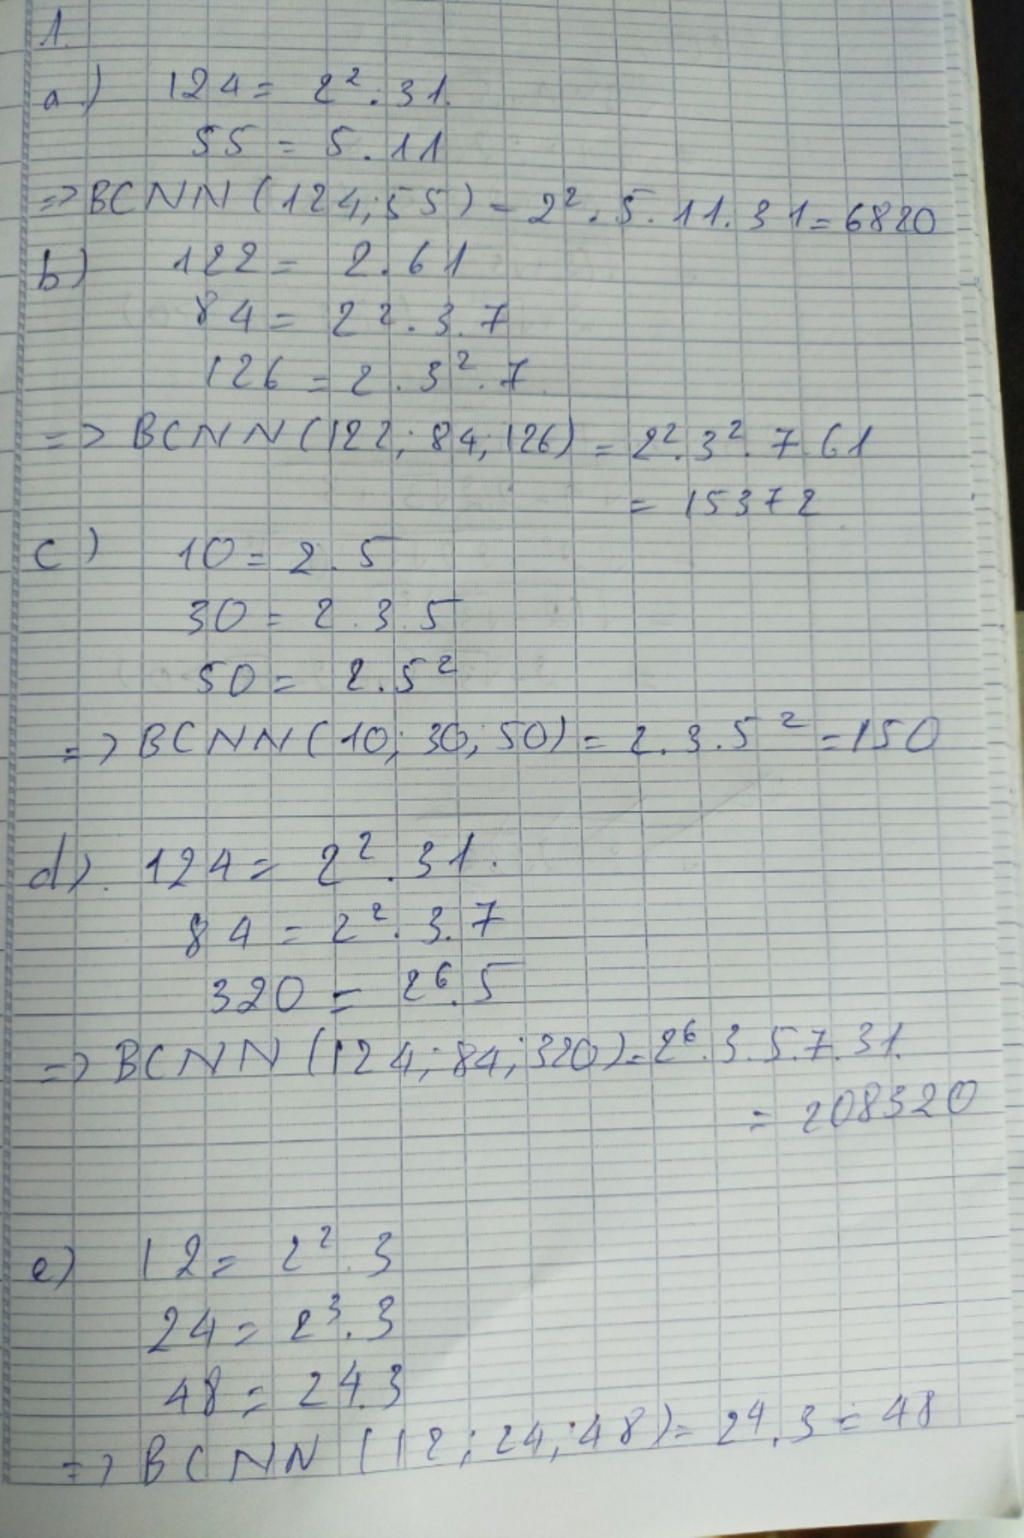 1.
a) 124 = 2². 31.
55 = 5. 11
=> BCNN (124; 55) = 2². 5. 11. 31 = 6820
b) 122 = 2. 61
84 = 2². 3. 7
126 = 2. 3². 7.
=> BCNN (122; 84; 126) = 2². 3². 7. 61
= 15372
c) 10 = 2. 5
30 = 2. 3. 5
50 = 2. 5²
=> BCNN (10; 30; 50) = 2. 3. 5² = 150
d). 124 = 2². 31.
84 = 2². 3. 7
320 = 2⁶. 5
=> BCNN (124; 84; 320) = 2⁶. 3. 5. 7. 31.
= 208320
e) 12 = 2². 3
24 = 2³. 3
48 = 2⁴. 3
=> BCNN (12; 24; 48) = 2⁴. 3 = 48